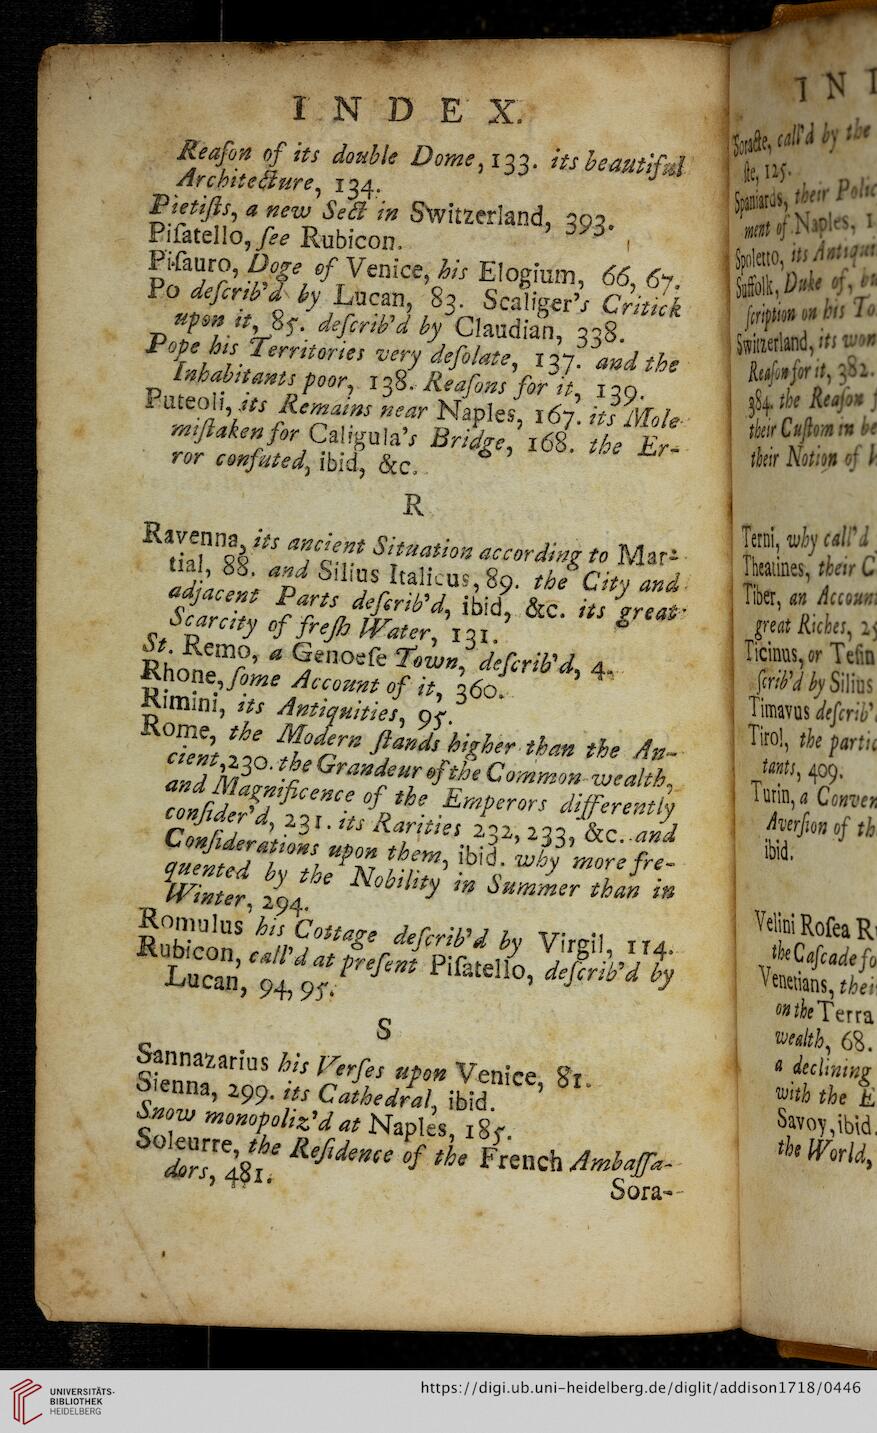 INDEX.
Reaſon of its double Dome, 133. its beautiful
Architecture, 134.
Pietiſts, a new Sect in Switzerland, 393.
Piſatello, ſee Rubicon.
Piſauro, Doge of Venice, his Elogium, 66, 67.
Po deſcrib'd by Lucan, 83. Scaliger's Critick
upon it, 85. deſcrib'd by Claudian, 338.
Pope his Territories very deſolate, 137. and the
Inhabitants poor, 138. Reaſons for it, 139.
Puteoli, its Remains near Naples, 167. its Mole
miſtaken for Caligula's Bridge, 168. the Er-
ror confuted, ibid, &c.
R
Ravenna, its ancient Situation according to Mar-
tial, 88. and Silius Italicus, 89. the City and
adjacent Parts deſcrib'd, ibid, &c. its great
Scarcity of freſh Water, 131.
St. Remo, a Genoeſe Town, deſcrib'd, 4.
Rhone, ſome Account of it, 360.
Rimini, its Antiquities, 95.
Rome, the Modern ſtands higher than the An-
cient, 230. the Grandeur of the Common-wealth,
and Magnificence of the Emperors differently
conſider'd, 231. its Rarities 232, 233, &c. and
Conſiderations upon them, ibid. why more fre-
quented by the Nobility in Summer than in
Winter, 294.
Romulus his Cottage deſcrib'd by Virgil, 114.
Rubicon, call'd at preſent Piſatello, deſcrib'd by
Lucan, 94, 95.
S
Sannazarius his Verſes upon Venice, 81.
Sienna, 299. its Cathedral, ibid.
Snow monopoliz'd at Naples, 185.
Soleurre, the Reſidence of the French Ambaſſa-
dors, 481.
Sora-
IN
Soracte, call'd by the
ſte, 125.
Spaniards, their
ment of Naples,
Spoletto, its
Suffolk, Duke of,
ſcription on his
Switzerland, its
Reaſon for it, 382.
384. the Reaſon
their Cuſtom in
their Notion of
Terni, why call'd
Theatines, their
Tiber, an
great Riches,
Ticinus, or
ſcrib'd by Silius
Timavus
Tirol, the
tants, 409.
Turin, a
Averſion of
ibid.
Velini Roſea
the Caſcade
Venetians,
on the Terra
wealth, 68.
a declining
with the
Savoy, ibid.
the World,
UNIVERSITÄTS-
BIBLIOTHEK
HEIDELBERG
https://digi.ub.uni-heidelberg.de/diglit/addison1718/0446